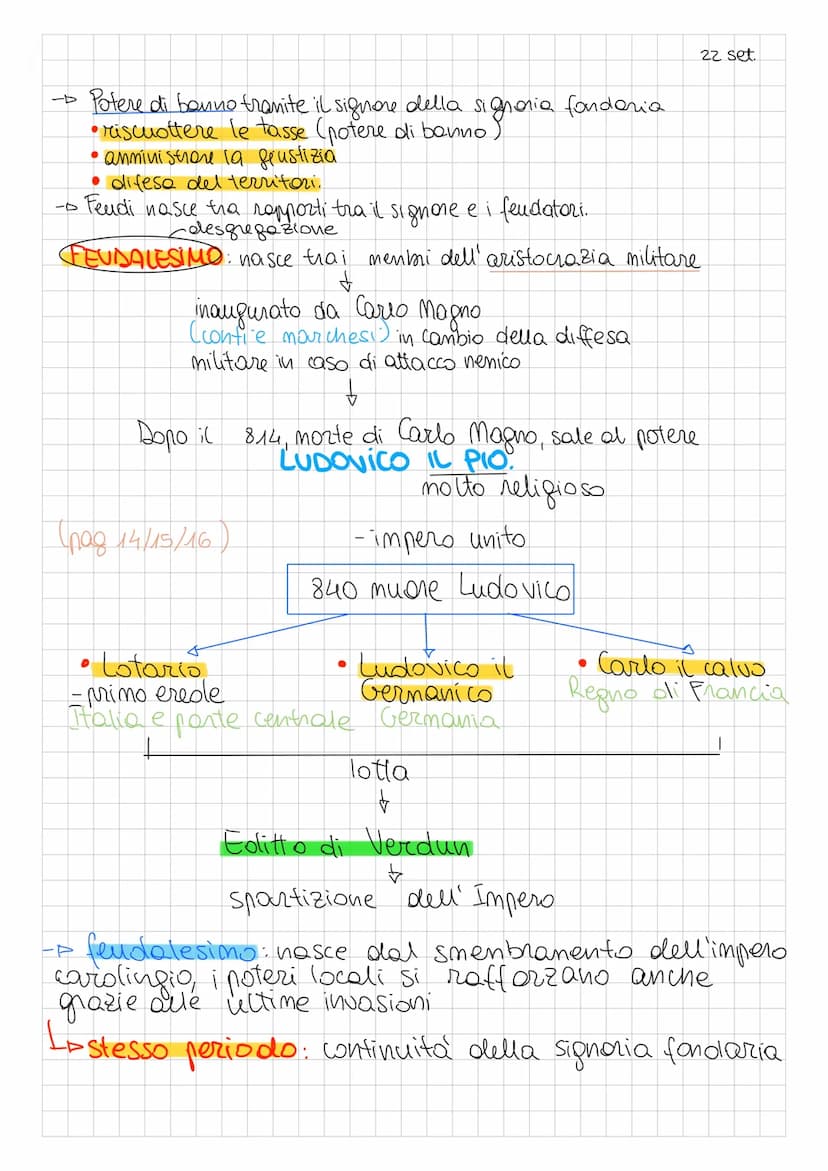 22 set.
→ Potere di banno tramite il signore della signoria fondaria
• riscuottere le tasse (potere di banno)
• amministrare la giustizia
• difesa del territori.
→ Feudi nasce tra rapporti tra il signore e i feudatori.
desgregazione
FEUDALESIMO: nasce tra i membri dell'aristocrazia militare
↓
inaugurato da Carlo Magno
(conti e marchesi) in cambio della diffesa
militare in caso di attacco nemico
↓
Dopo il 814, morte di Carlo Magno, sale al potere
LUDOVICO IL PIO.
molto religioso
(pag 14/15/16) - impero unito
840 muore Ludovico
• Lotario • Ludovico il • Carlo il calvo
- primo erede Germanico Regno di Francia
Italia e parte centrale Germania
lotta
↓
Editto di Verdun
↓
spartizione dell'Impero
→ feudalesimo: nasce dal smenbramento dell'impero
carolingio, i poteri locali si rafforzano anche
grazie alle ultime invasioni
↳ stesso periodo: continuità della signoria fondaria